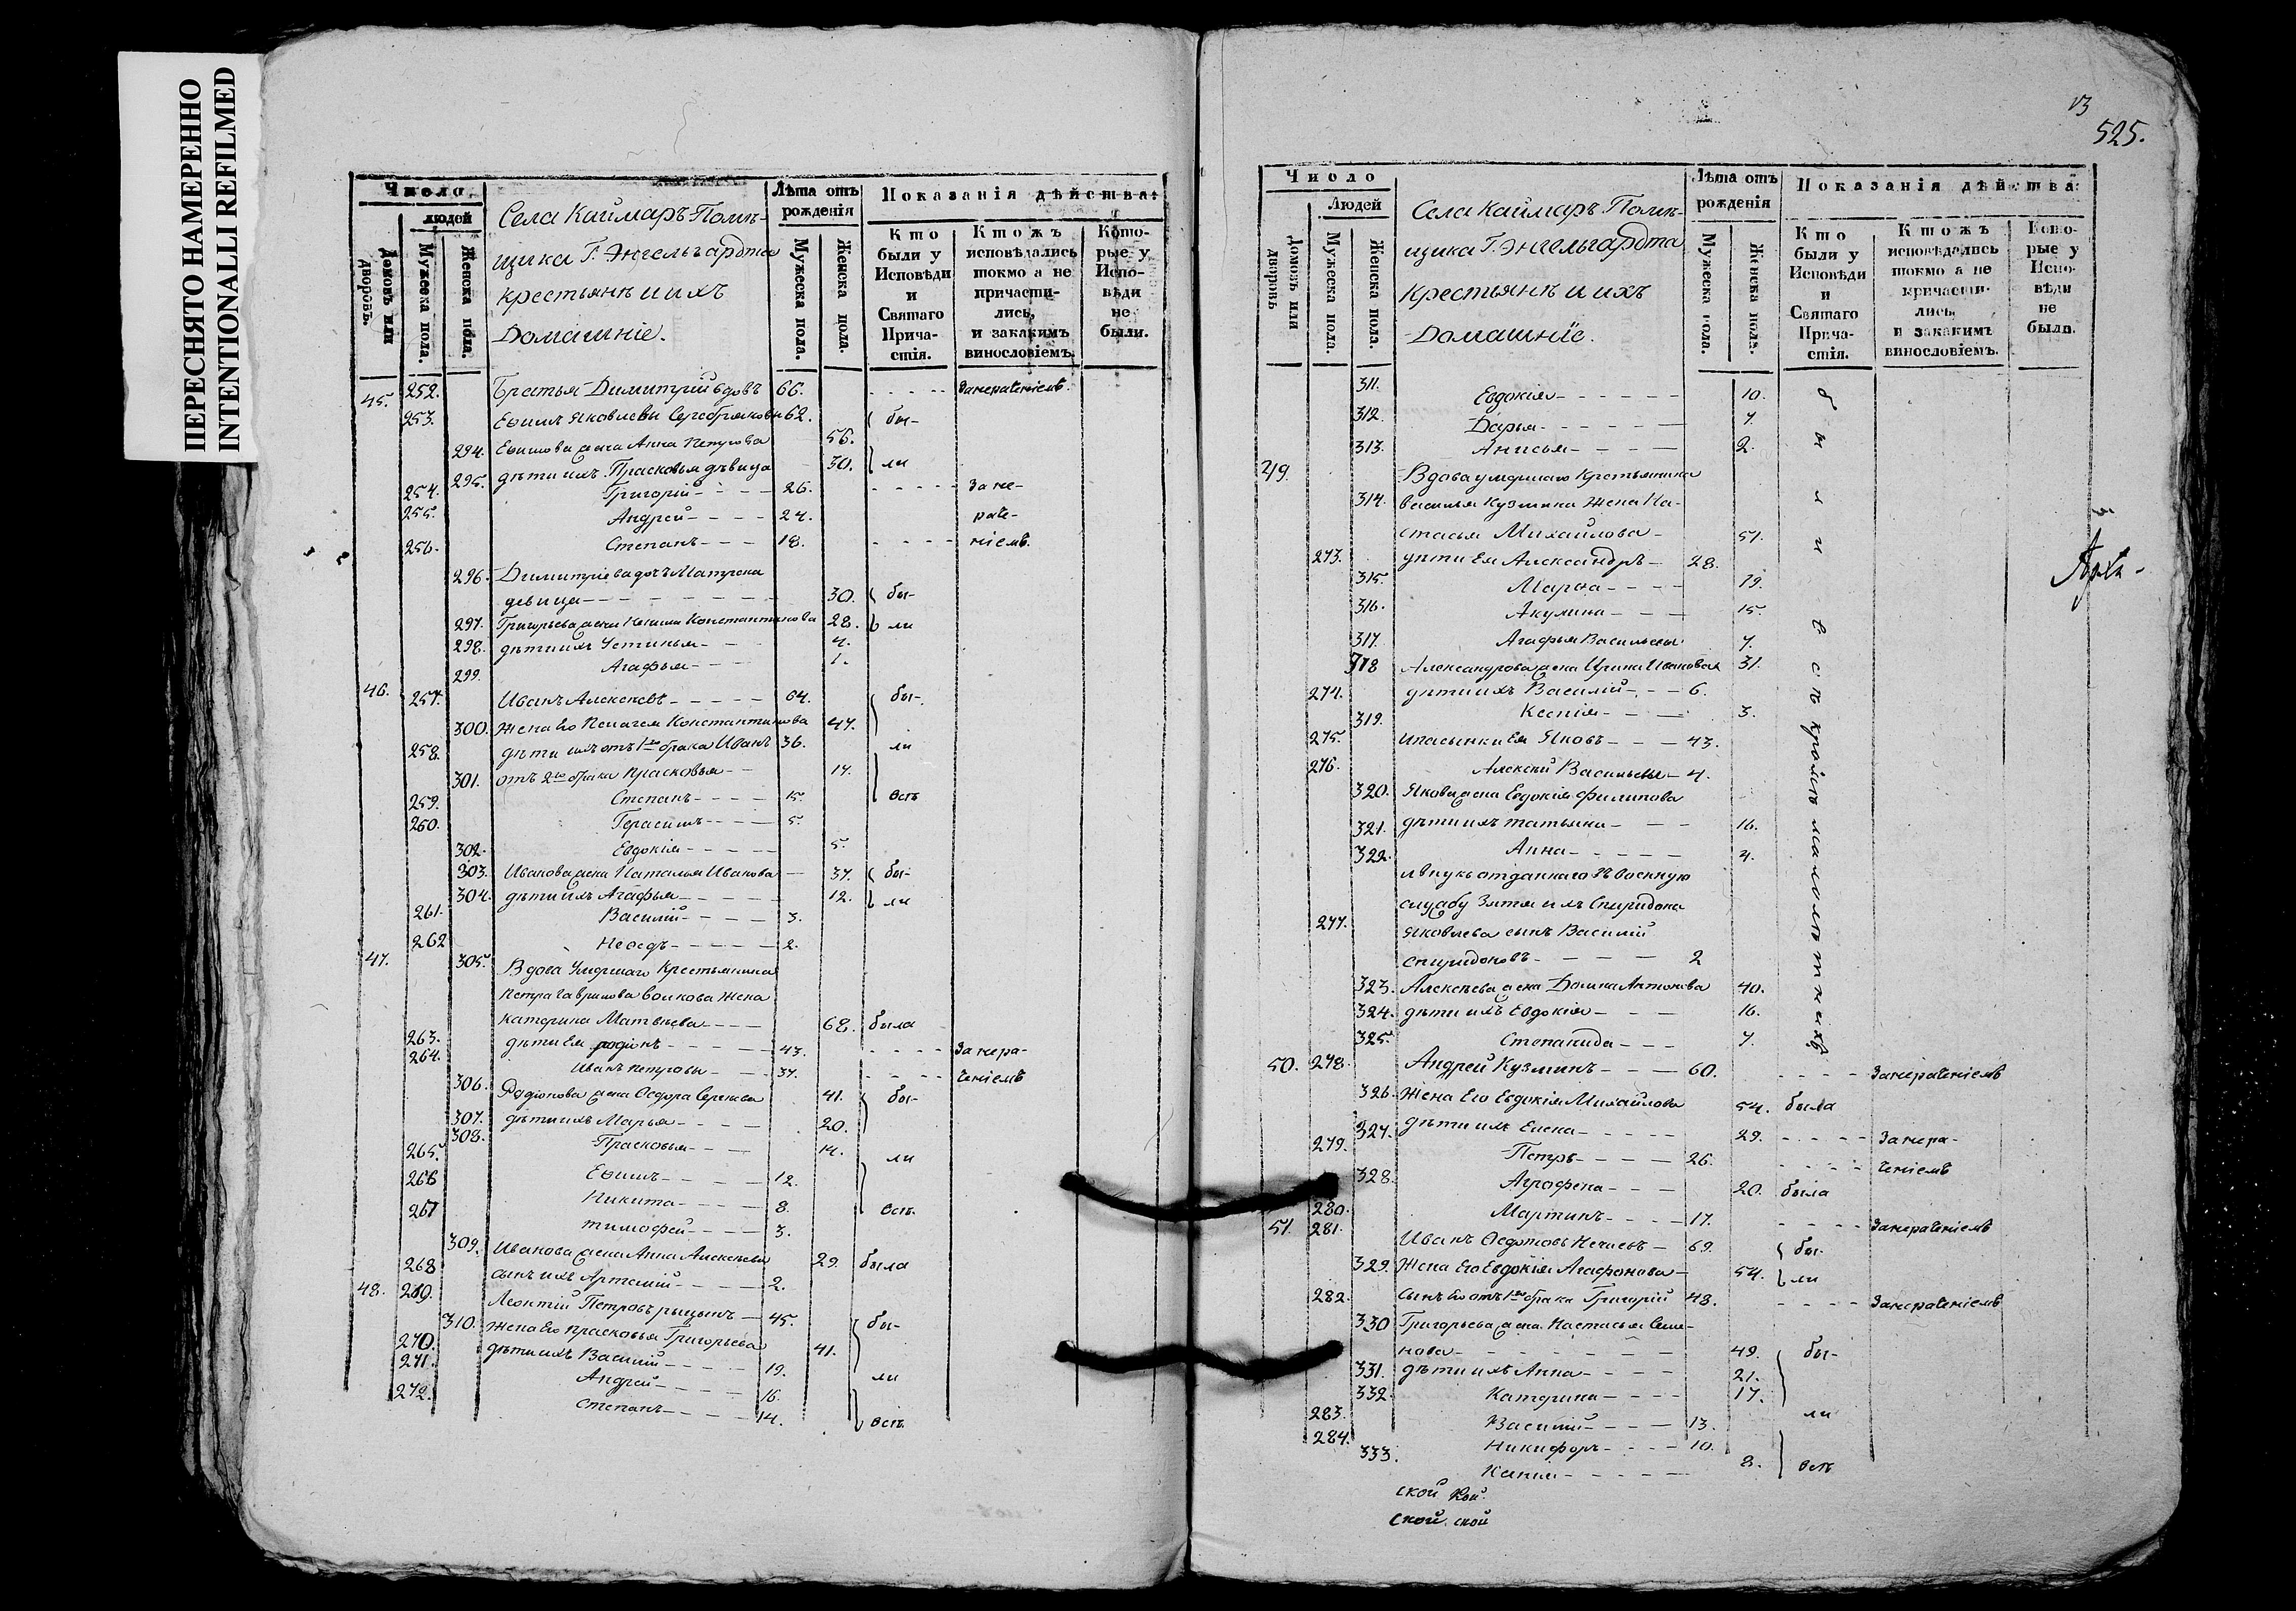 ПЕРЕСНЯТО НАМЕРЕННО
INTENTIONALLI REFILMED
Число
Людей
Домовъ или дворовъ.
Мужеска пола.
Женска пола.
Села Каймаръ Помѣ-
щика Г. Энгельгардта
крестьянѣ и ихъ
Домашніе.
Лѣта отъ рожденія
Мужеска пола.
Женска пола.
Показанія дѣйства:
Кто были у Исповѣди и Святаго Причастія.
Ктожъ исповѣдались токмо а не причастились, и закакимъ винословіемъ.
Которые у Исповѣди не были.
45. 252. Братья Димитрий вдовъ 66. - - - - Занераченіемъ
253. Ефимъ Яковлевы Серебряковы 62. бы-
294. Ефимова жена Анна Петрова 56.
295. дѣти ихъ Прасковья дѣвица 30. ли
254. Григорій - - - - 26. - - - - Зане-
255. Андрей - - - - 24. раче-
256. Степанъ - - - 18. - - - - ніемъ
296. Димитріева дочь Матрена
дѣвица - - - - - - - 30. бы-
297. Григорьева жена Ксенія Константинова 28. ли
298. дѣти ихъ Устинья - - 4.
299. Агафья - - - 1.
46. 257. Иванъ Алексѣевъ - - - - - 64. бы-
300. Жена Его Пелагея Константинова 47.
258. дѣти ихъ отъ 1го брака Иванъ 36. ли
301. отъ 2го брака Прасковья - - 17.
259. Степанъ - - - - 15. всѣ
260. Герасимъ - - - - 5.
302. Евдокія - - - - - 5.
303. Иванова жена Наталья Иванова - 37. бы-
304. дѣти ихъ Агафья - - - - - 12. ли
261. Василій - - - - 3.
262 Неѳедъ - - - - - 2.
47. 305. Вдова Умершаго Крестьянина
Петра Гаврилова Волкова Жена
Катерина Матвѣева - - - 68. была
263. дѣти Ея Родіонъ - - - - - 43. - - - - Занера-
264. Иванъ Петровы - - - 37. - - - - ченіемъ
306. Родіонова жена Ѳедора Сергѣева 41. бы-
307. дѣти ихъ Марья - - - - 20.
308. Прасковья - - - 14. ли
265. Ефимъ - - - - - 12.
266 Никита - - - - 8. всѣ
267 Тимофей - - - - 3.
309. Иванова жена Анна Алексѣева 29. была
268 сынъ ихъ Артемій - - - - 2.
48. 269. Леонтій Петровъ рыцынъ - 45. бы-
310. Жена Его Прасковья Григорьева 41.
270. дѣти ихъ Василій - - - - 19. ли
271. Андрей - - - - 16.
272. Степанъ - - - - 14. всѣ
525.
Число
Людей
Домовъ или дворовъ
Мужеска пола.
Женска пола.
Села Каймаръ Помѣ-
щика Г. Энгельгардта
Крестьянѣ и ихъ
Домашніе.
Лѣта отъ рожденія
Мужеска пола.
Женска пола.
Показанія дѣйства:
Кто были у Исповѣди и Святаго Причастія.
Ктожъ исповѣдались токмо а не причастились, и закакимъ винословіемъ.
Которые у Исповѣди не были.
311. Евдокія - - - - - - 10.
312. Дарья - - - - - - 7.
313. Анисья - - - - - 2.
были всѣ кромѣ малолѣтнихъ
49. Вдова умершаго Крестьянина
314. Василья Кузмина Жена На-
стасья Михайлова - 51.
273. дѣти Ея Александръ - 28.
315. Марфа - - - - 19.
316. Акулина - - - - 15.
317. Агафья Васильевы 7.
318 Александрова жена Ирина Иванова 31.
274. дѣти ихъ Василій - - - 6.
319. Ксенія - - - 3.
275. Ипасынки Ея Яковъ - - - 43.
276. Алексѣй Васильевы - 4.
320. Яковa жена Евдокія Филипова
321. дѣти ихъ Татьяна - - - 16.
322. Анна - - - - - 4.
и внукъ отданнаго въ военную
службу Зятя ихъ Спиридона
277. Яковлева сынъ Василій
Спиридоновъ - - - - 2
323. Алексѣева жена Домна Антонова 40.
324. дѣти ихъ Евдокія - - - 16.
325. Степанида - - - 7.
50. 278. Андрей Кузминъ - - - 60. - - - - Занераченіемъ
326. Жена Его Евдокія Михайлова 54. была
327. дѣти ихъ Елена - - - - - 29. - - - - Занера-
279. Петръ - - - - 26. - - - - ченіемъ
328. Аграфена - - - 20. была
280. Мартинъ - - - - 17. - - - - Занераченіемъ
51. 281. Иванъ Ѳедотовъ Нечаевъ - 69. бы-
329. Жена Его Евдокія Агафонова - 54. ли
282. Сынъ Его отъ 1го брака Григорій 48. - - - - Занераченіемъ
330 Григорьева жена Настасья Семе-
нова - - - - - - - 49. бы-
331. дѣти ихъ Анна - - - - 21.
332. Катерина - - - - 17.
283. Василій - - - - 13. ли
284. Никифоръ - - - - 10.
333. Ксенія - - - - - 8. всѣ
ской кой
ской. ской